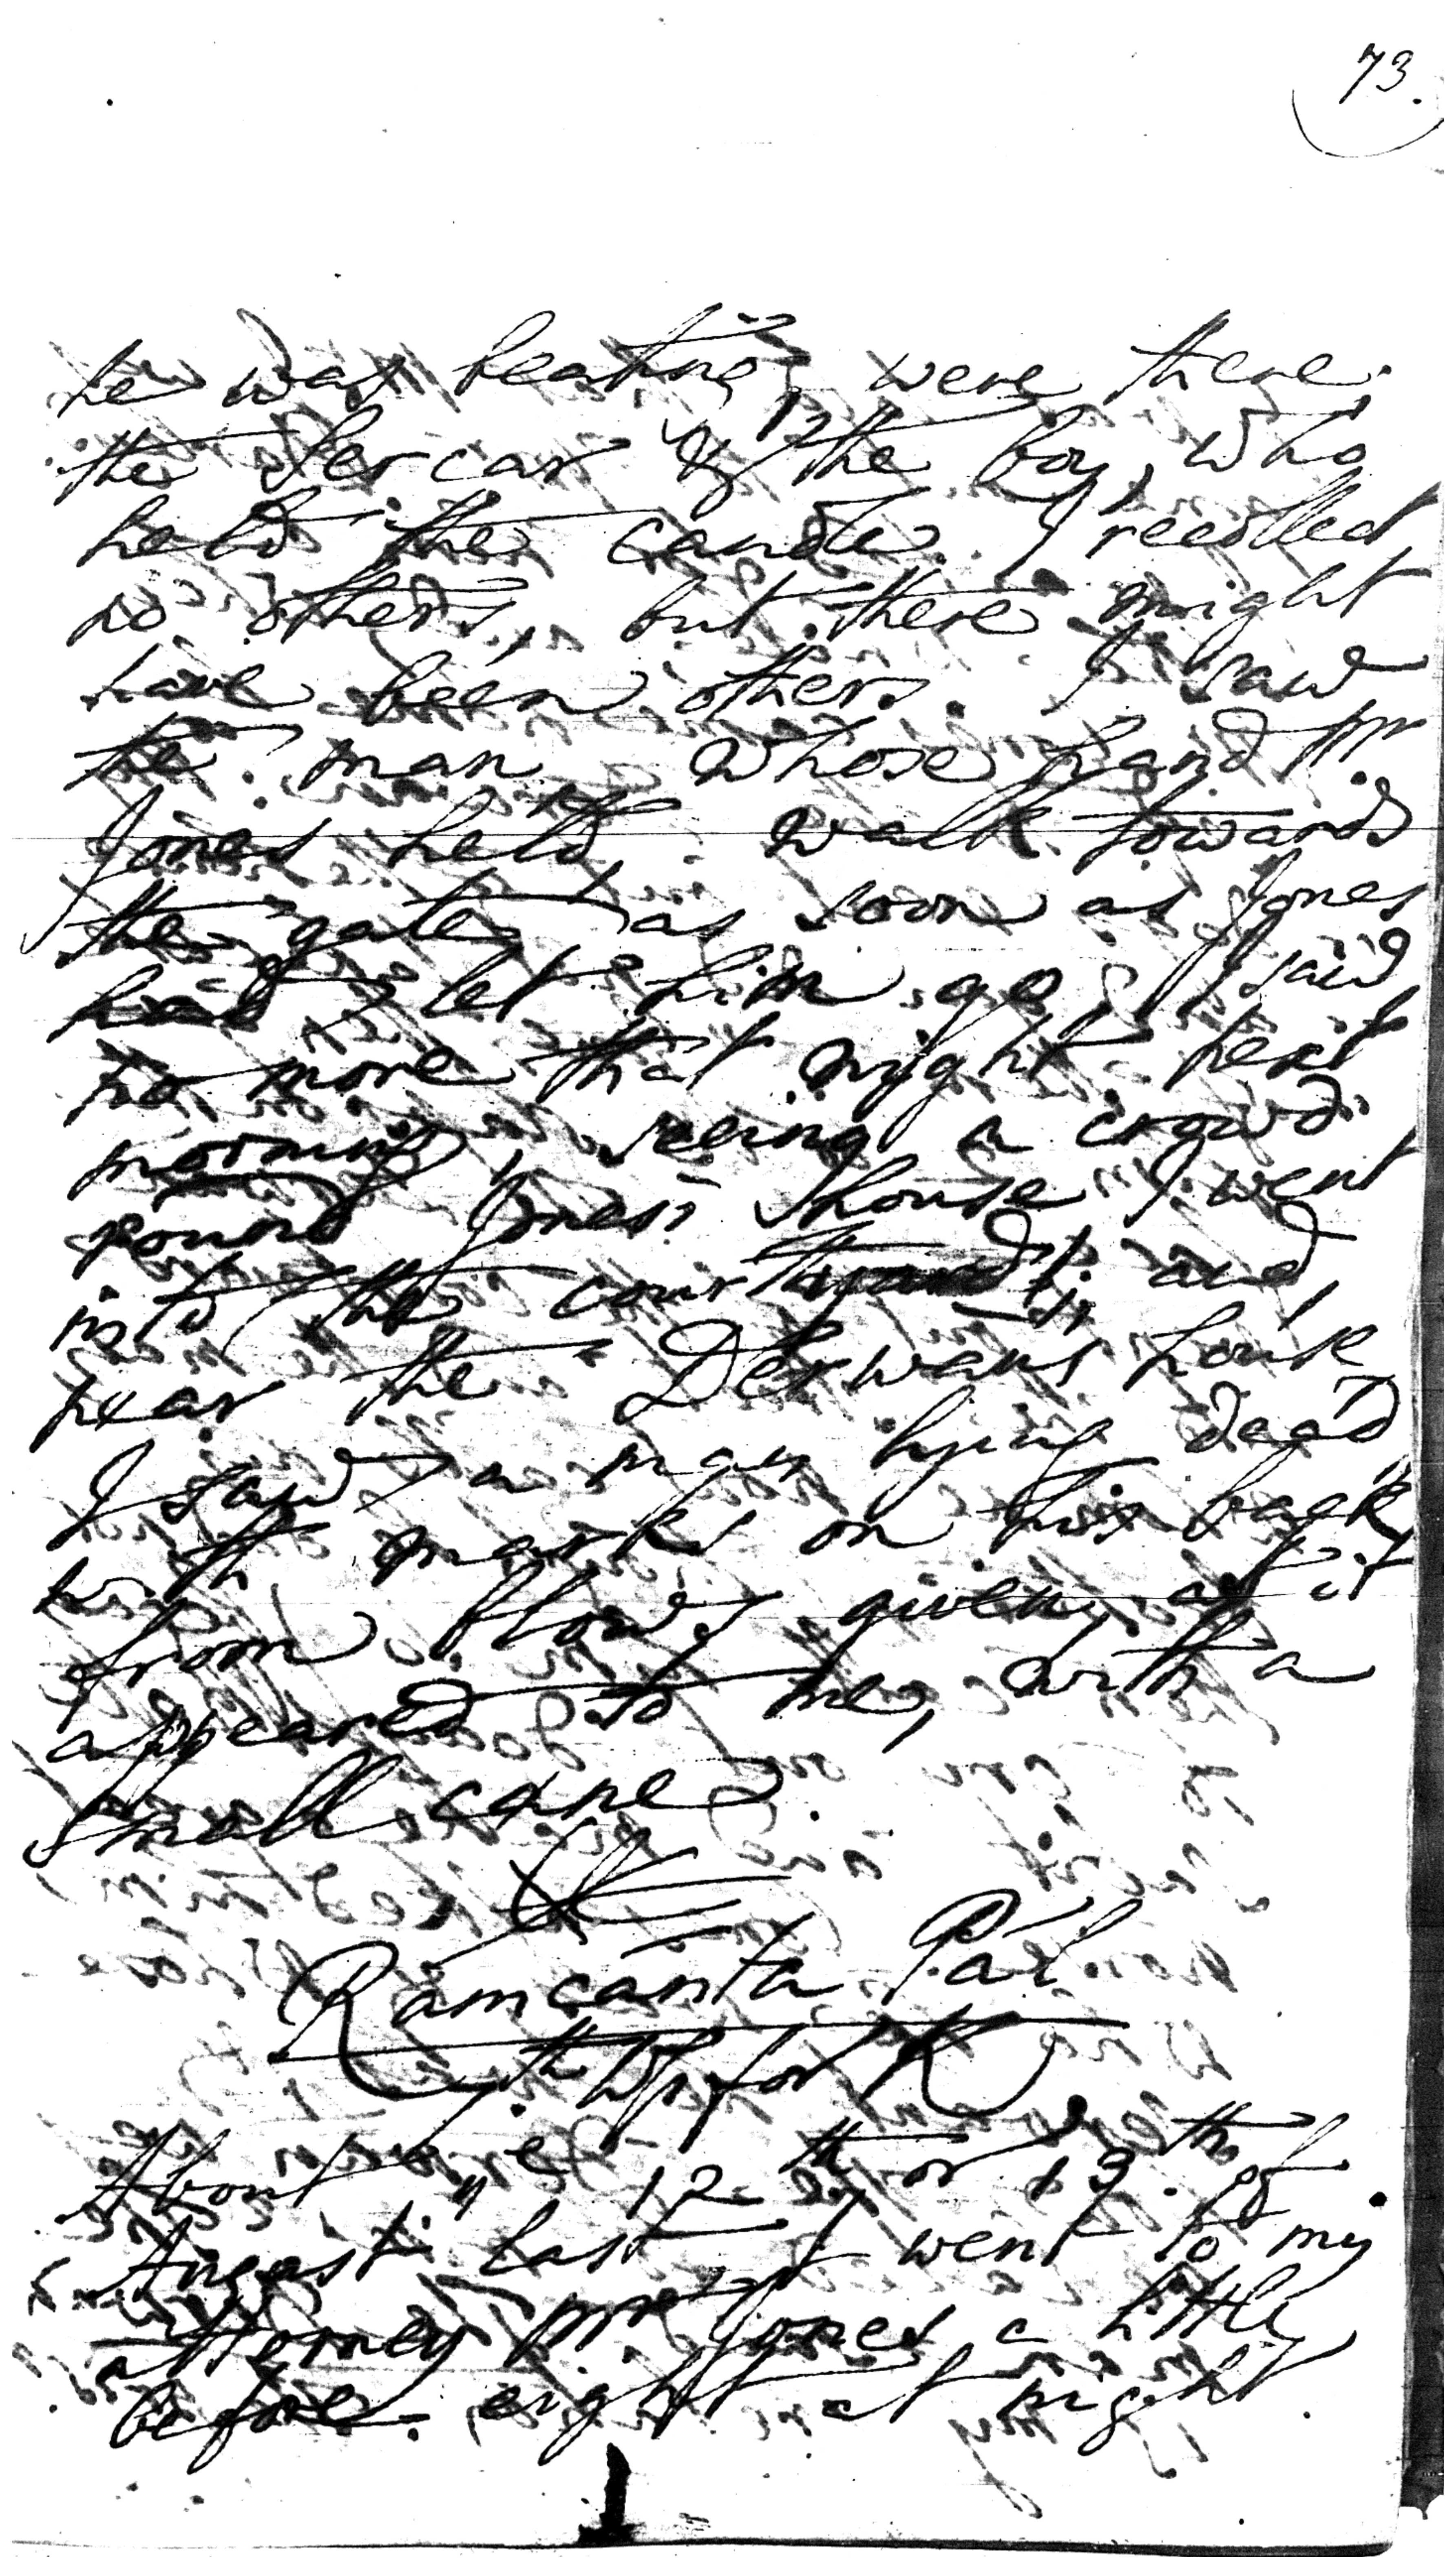 73.
he was beating were there.
the Sercar & the boy, who
held the candle. I recollect
no others, but there might
have been others. I saw
the man whose hand Mr
Jones held walk towards
the gate as soon as Jones
had let him go. I saw
no more that night. Next
morning seeing a crowd
round Jones's house I went
into the court and,
near the Derwans house
I saw a man lying dead
with marks on his back
from blows given, as it
appeared to me, with a
small cane.
Ramcanta Pal
th W for K
About 12th or 13th of
August last I went to my
attorney Mr Jones a little
before eight at night